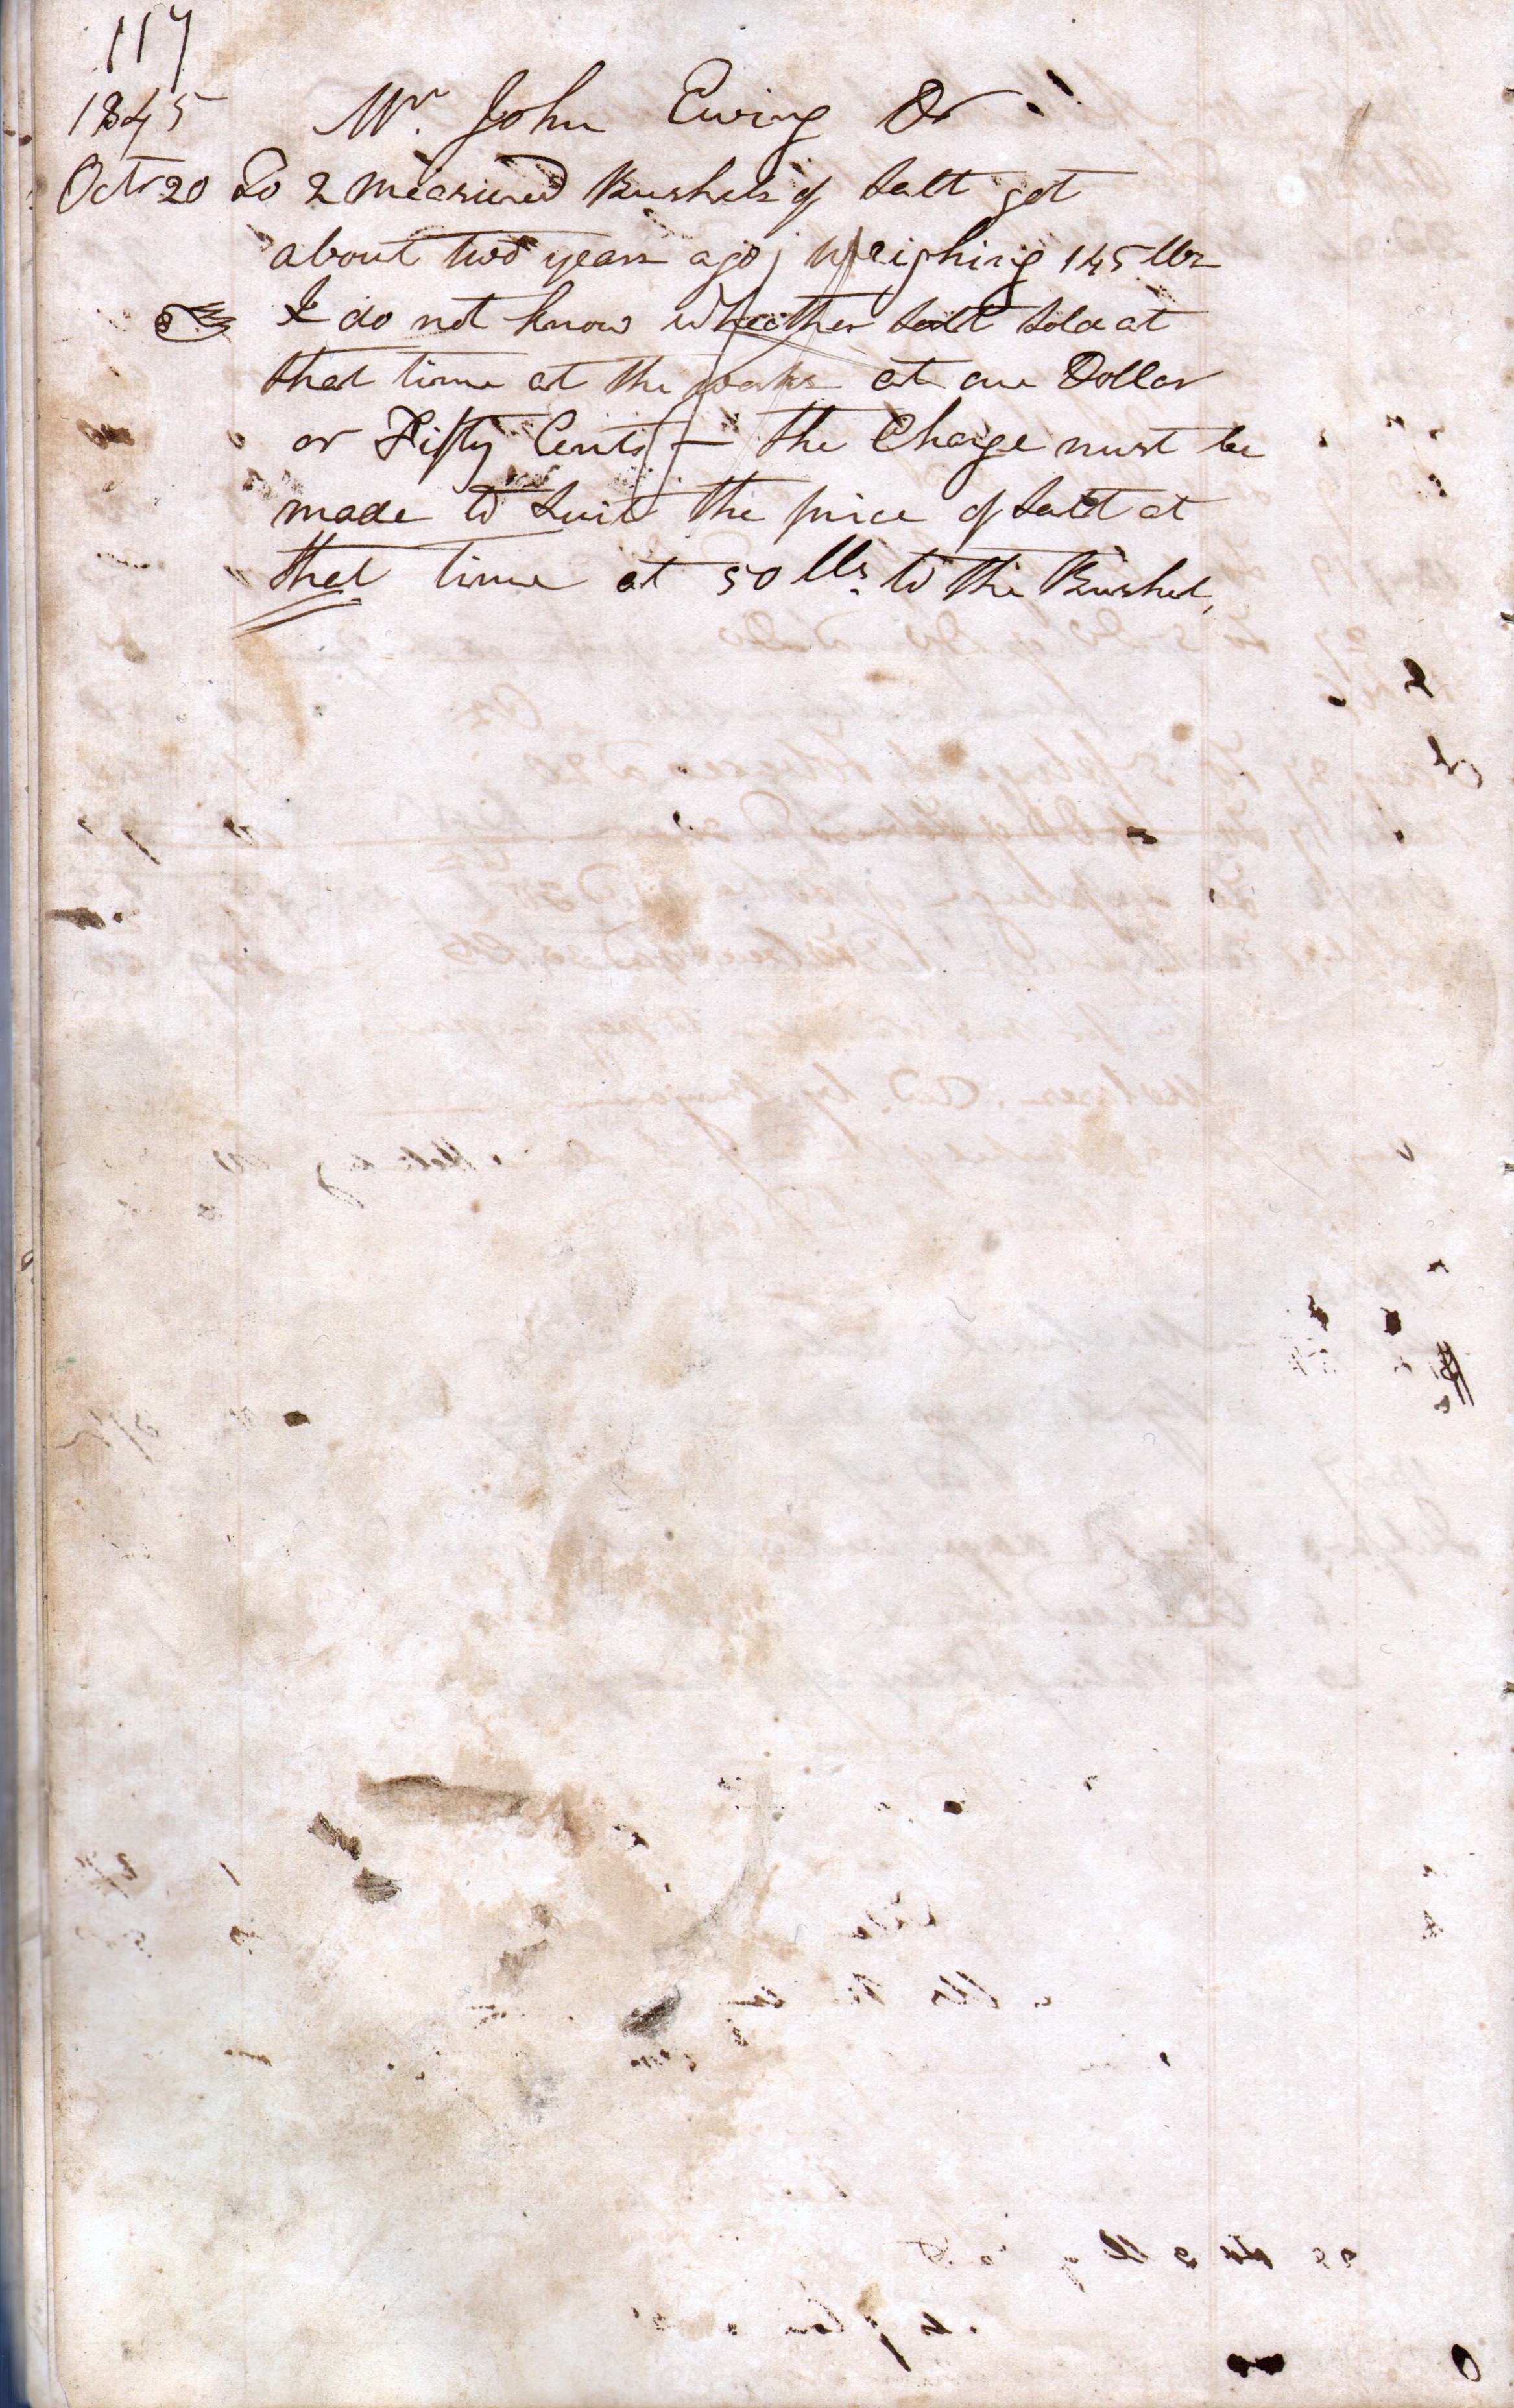 117
1845 Mr. John Ewing Dr
Octr 20 To 2 measured Bushels of Salt got
about two years ago, weighing 145 lbs
I do not know whether Salt sold at
that time at the works at one Dollar
or Fifty Cents — the Charge must be
made to suit the price of Salt at
that time at 50 lbs. to the Bushel,